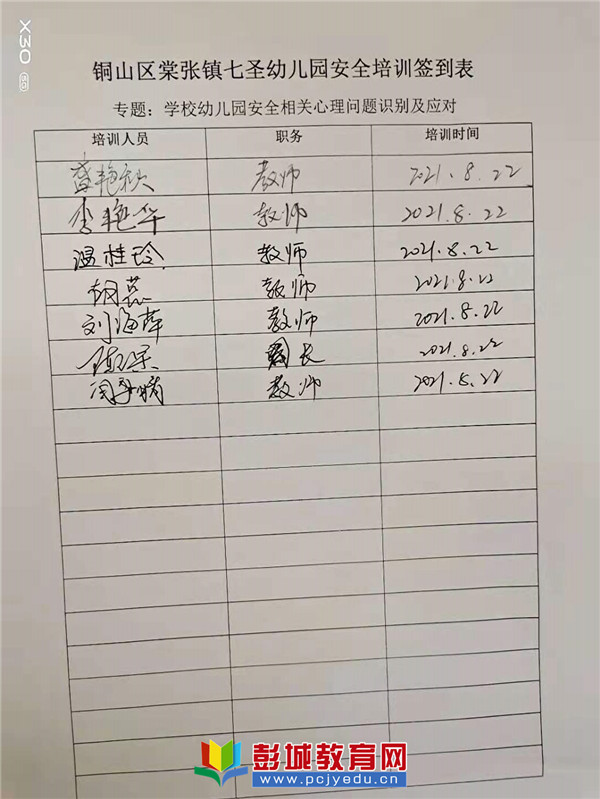 X30
铜山区棠张镇七圣幼儿园安全培训签到表
专题：学校幼儿园安全相关心理问题识别及应对
培训人员 职务 培训时间
盛艳秋 教师 2021.8.22
李艳华 教师 2021.8.22
温桂玲 教师 2021.8.22
胡蕊 教师 2021.8.22
刘海萍 教师 2021.8.22
园长 2021.8.22
教师 2021.8.22
彭城教育网
www.pcjyedu.cn